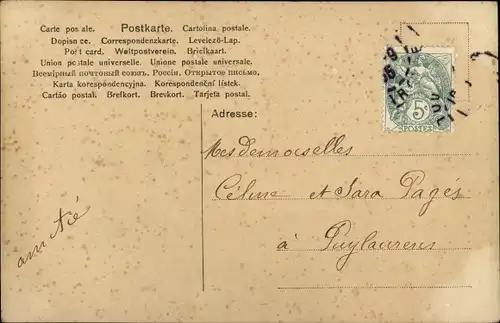 Carte postale. Postkarte. Cartolina postale.
Dopisnice. Correspondenzkarte. Levelező-Lap.
Post card. Weltpostverein. Briefkaart.
Union postale universelle. Unione postale universale.
Всемірный почтовый союзъ. Россія. Открытое письмо.
Karta korespondencyjna. Korespondenční lístek.
Cartão postal. Brefkort. Brevkort. Tarjeta postal.
5c
POSTES
Adresse:
Mesdemoiselles
Céline et Sara Pagés
à Puylaurens
amitié